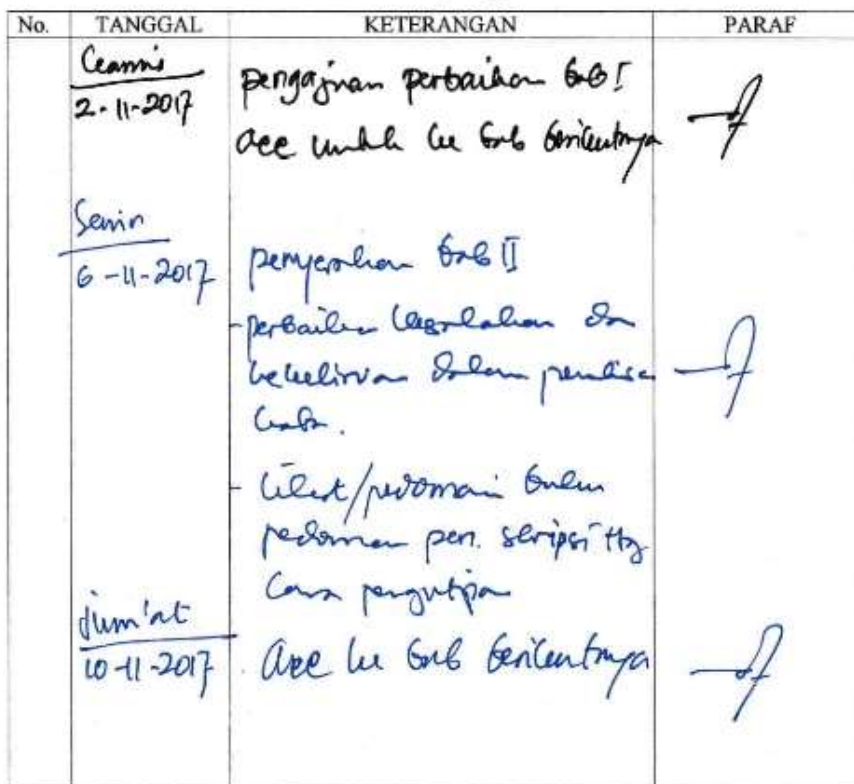 No. TANGGAL KETERANGAN PARAF
Kamis
2-11-2017
pengajuan perbaikan bab I
acc untuk ke bab berikutnya
Senin
6-11-2017
penyerahan bab II
- perbaikan kesalahan dan
kekeliruan dalam penulisan
kata.
- lihat/pedomani buku
pedoman pen. skripsi ttg
cara pengutipan
Jum'at
10-11-2017
acc ke bab berikutnya